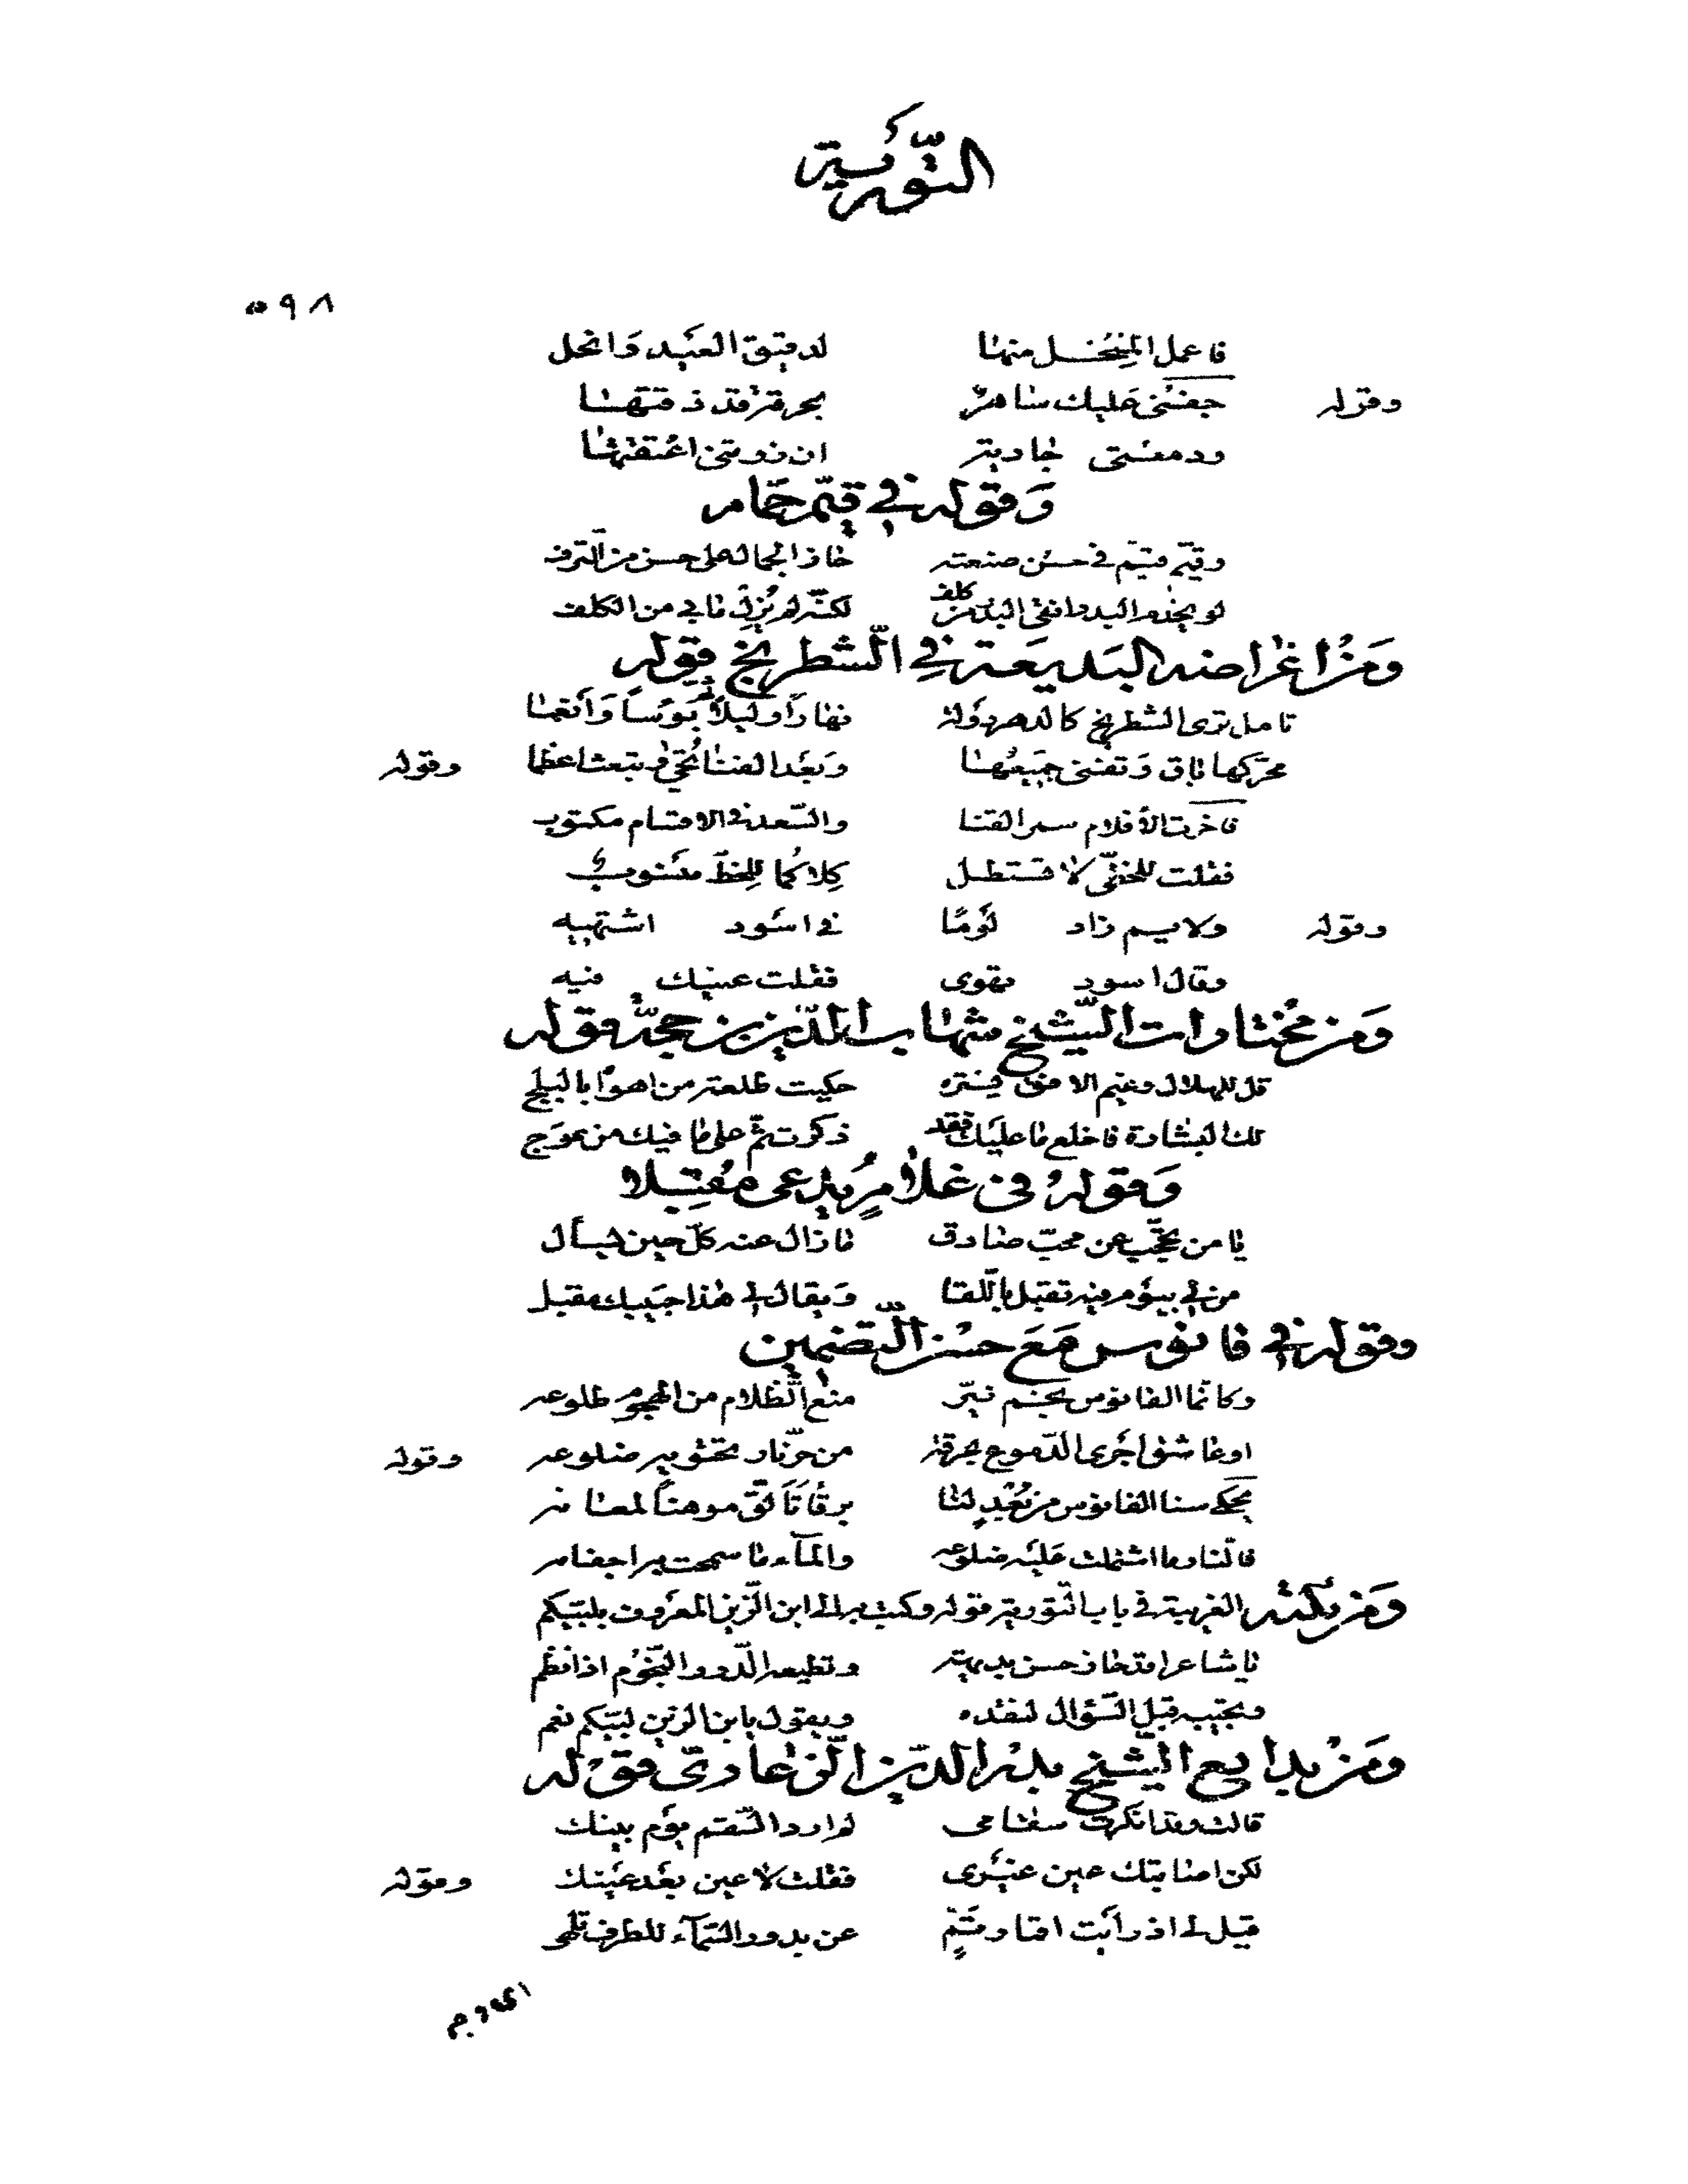 التورية
٥٩٨
فاعمل المنخل منها لدقيق العيد وانخل
وقوله جفني عليك ساهر بحرقة قد ذقتها
ودمعتي جارية ان زرتني اعتقتها
وقوله في قيم حمام
وقيّم قيّم في حسن صنعته حاز الجمال على حسن من الترف
لو يخدم البدر انقى البدر من كلف لكنه لم يزل ما بي من الكلف
ومن اغراضه البديعة في الشطرنج قوله
تامل ترى الشطرنج كالدهر دولة نهاراً وليلاً ثم بؤساً وأنعما
محركها باق وتفنى جميعها وبعد الفنا تحيى وتبعث اعظما وقوله
فاخرت الأقلام سمر القنا والسعد في الاقسام مكتوب
فقلت للخطّي لا تستطل كلاكما للخط منسوب
وقوله ولايم زاد لومًا في اسود اشتهيه
وقال اسود تهوى فقلت عينيك فيه
ومن مختارات الشيخ شهاب الدين بن حجر قوله
قل للهلال وغيم الافق يستره حكيت طلعة من اهواه بالبلج
لك البشارة فاخلع ما عليك فقد ذكرت ثم على ما فيك من عوج
وقوله في غلام يدعى مقبلا
يا من يحجّب عن محبّ صادق ما زال عنه كلّ حين يسأل
من لي بيوم فيه تقبل باللقا ويقال لي هذا حبيبك مقبل
وقوله في فانوس مع حسن التضمين
وكانما الفانوس نجم نيّر منع الظلام من الهجوم طلوعه
او عاشق اجرى الدموع بحرقة من حرّ نار تحتويه ضلوعه وقوله
يحكي سنا الفانوس من بُعدٍ لنا برقًا تألّق موهناً لمعانه
فالنار ما اشتملت عليه ضلوعه والمآء ما سمحت به اجفانه
ومن نكته الغريبة في باب التورية قوله وكتب به الى ابن الزين المعروف بلبيكم
يا شاعرا قد حاز حسن بديهة وتطيعه الدرر النجوم اذا نظم
ويجيب قبل السؤال لنقده ويقول يا بن الزين لبيكم نعم
ومن بدايع الشيخ بدر الدين الزغاري قوله
قالت وقد انكرت سقامي لم ار ذا السقم يوم بينك
لكن اصابتك عين غيري فقلت لا عين بعد عينك وقوله
قيل لي اذ رأيت اقمار تمٍّ عن بدور السمآء للطرف تلهي